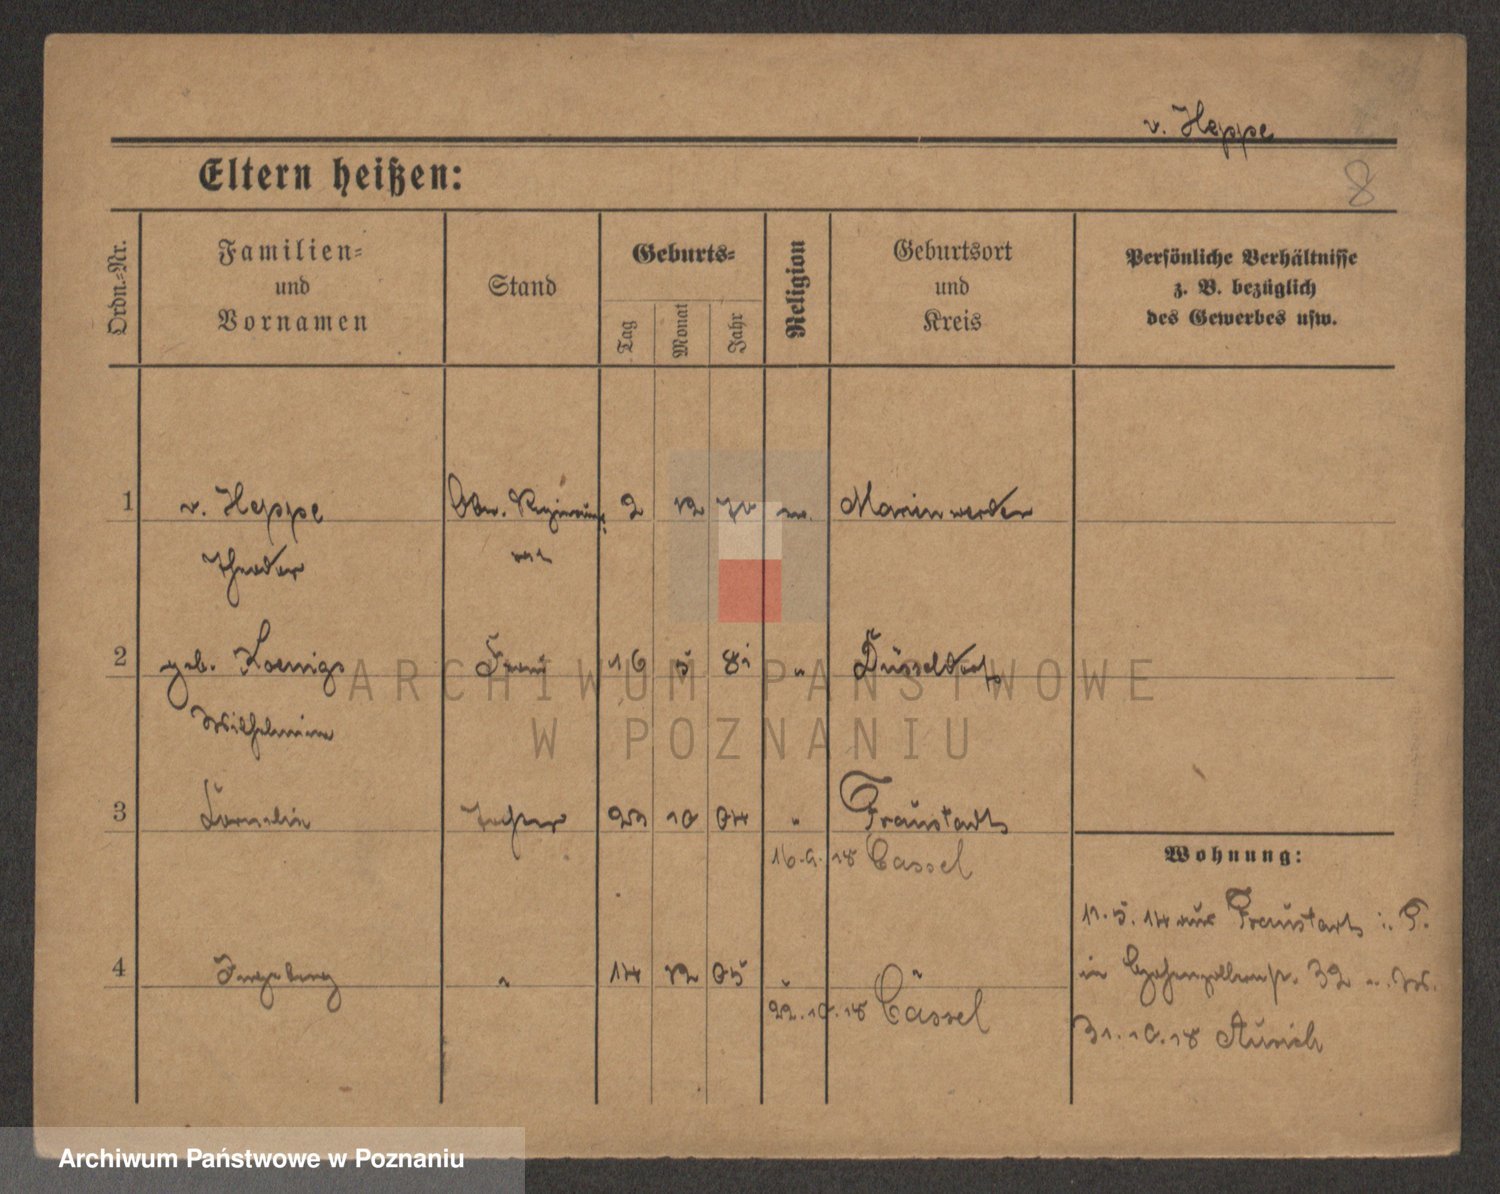 v. Heppe
8
Eltern heißen:
Ordn.-Nr.
Familien-
und
Vornamen
Stand
Geburts-
Tag
Monat
Jahr
Religion
Geburtsort
und
Kreis
Persönliche Verhältnisse
z. B. bezüglich
des Gewerbes usw.
1 v. Heppe Ober. Regierungs- 2 12 70 ev. Marienwerder
Theodor rat
2 geb. Koenigs Frau 16 5 81 " Düsseldorf
Wilhelmine
3 Cornelia Tochter 10 04 " Fraustadt
16.9.18 Cassel
Wohnung:
11.5.14 aus Fraustadt i. P.
4 Ingeborg " 14 12 05 " "
in Hohenzollernstr. 32
22.10.18 Cassel
31.10.18 Aurich
ARCHIWUM PAŃSTWOWE
W POZNANIU
Archiwum Państwowe w Poznaniu